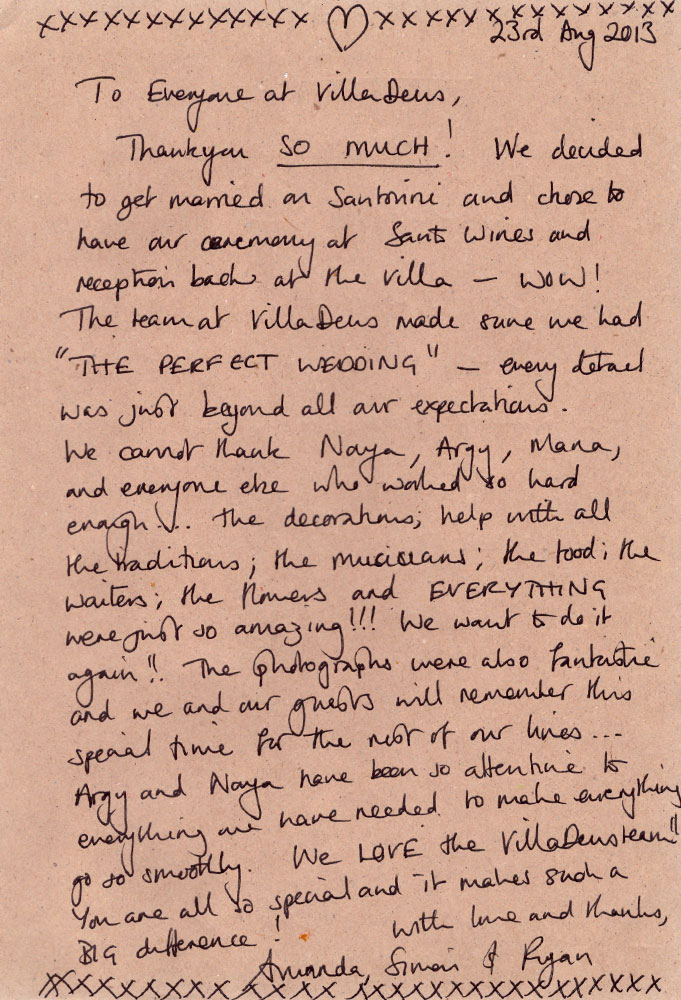 xxxxxxxxxxxxx ♡ xxxxxxxxxxxxxx
23rd Aug 2013
To Everyone at VillaDeus,
Thankyou SO MUCH! We decided
to get married on Santorini and chose to
have our ceremony at Santo Wines and
reception back at the Villa - WOW!
The team at VillaDeus made sure we had
"THE PERFECT WEDDING" - every detail
was just beyond all our expectations.
We cannot thank Naya, Argy, Maria,
and everyone else who worked so hard
enough... the decorations; help with all
the traditions; the musicians; the food; the
waiters; the flowers and EVERYTHING
were just so amazing!!! We want to do it
again!! The photographs were also fantastic
and we and our guests will remember this
special time for the rest of our lives...
Argy and Naya have been so attentive to
everything we have needed to make everything
go so smoothly. We LOVE the VillaDeus team!!
You are all so special and it makes such a
BIG difference! with love and thanks,
Amanda, Simon & Ryan
xxxxxxxxxxxxxxxxxxxxxxxxxxxxxx